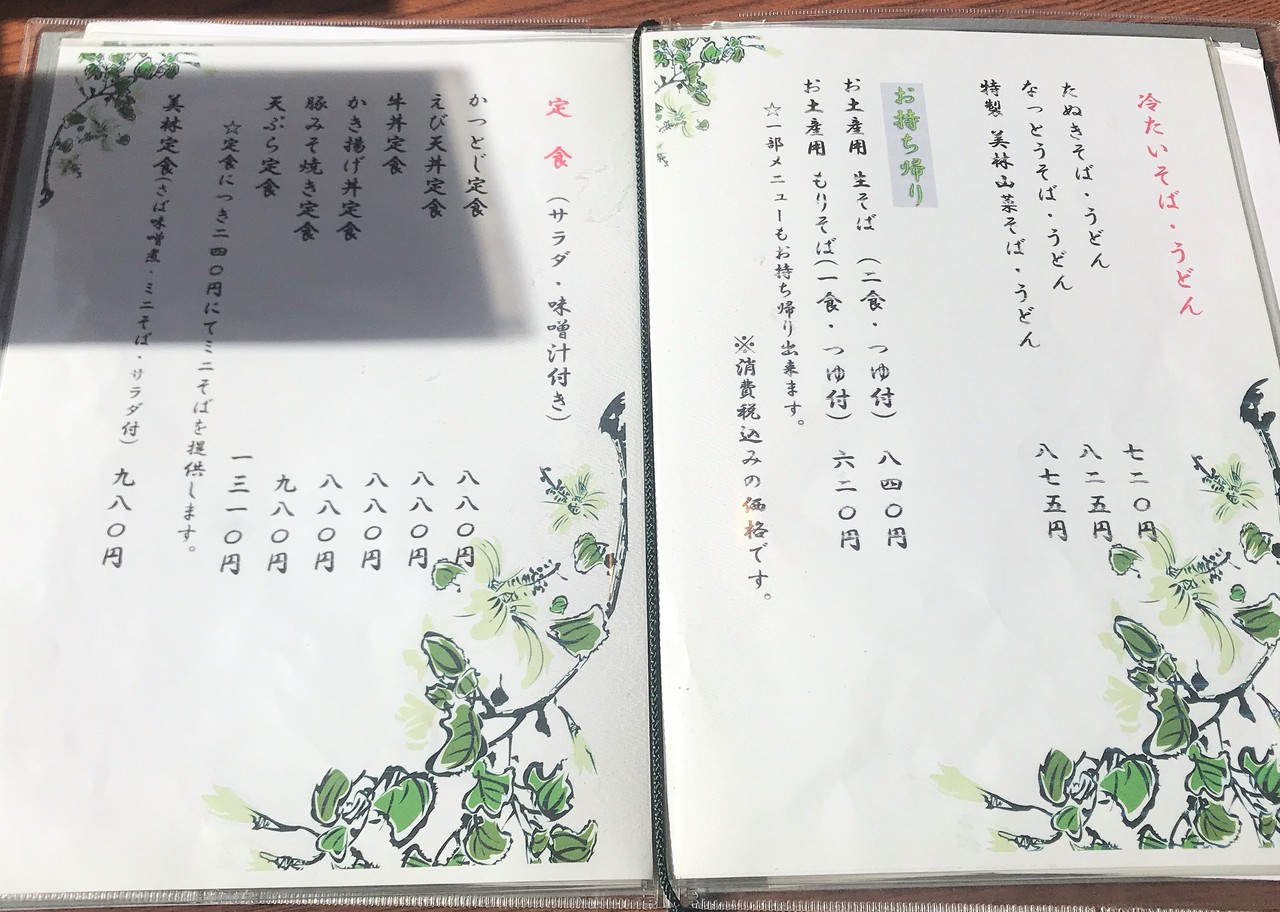 冷たいそば・うどん
たぬきそば・うどん 七二〇円
なっとうそば・うどん 八二五円
特製 美林山菜そば・うどん 八七五円
お持ち帰り
お土産用 生そば (二食・つゆ付) 八四〇円
お土産用 もりそば(一食・つゆ付) 六二〇円
☆一部メニューもお持ち帰り出来ます。
※消費税込みの価格です。
定食 (サラダ・味噌汁付き)
かつとじ定食 八八〇円
えび天丼定食 八八〇円
牛丼定食 八八〇円
かき揚げ丼定食 八八〇円
豚みそ焼き定食 九八〇円
天ぷら定食 一三一〇円
☆定食につき二四〇円にてミニそばを提供します。
美林定食(さば味噌煮・ミニそば・サラダ付) 九八〇円